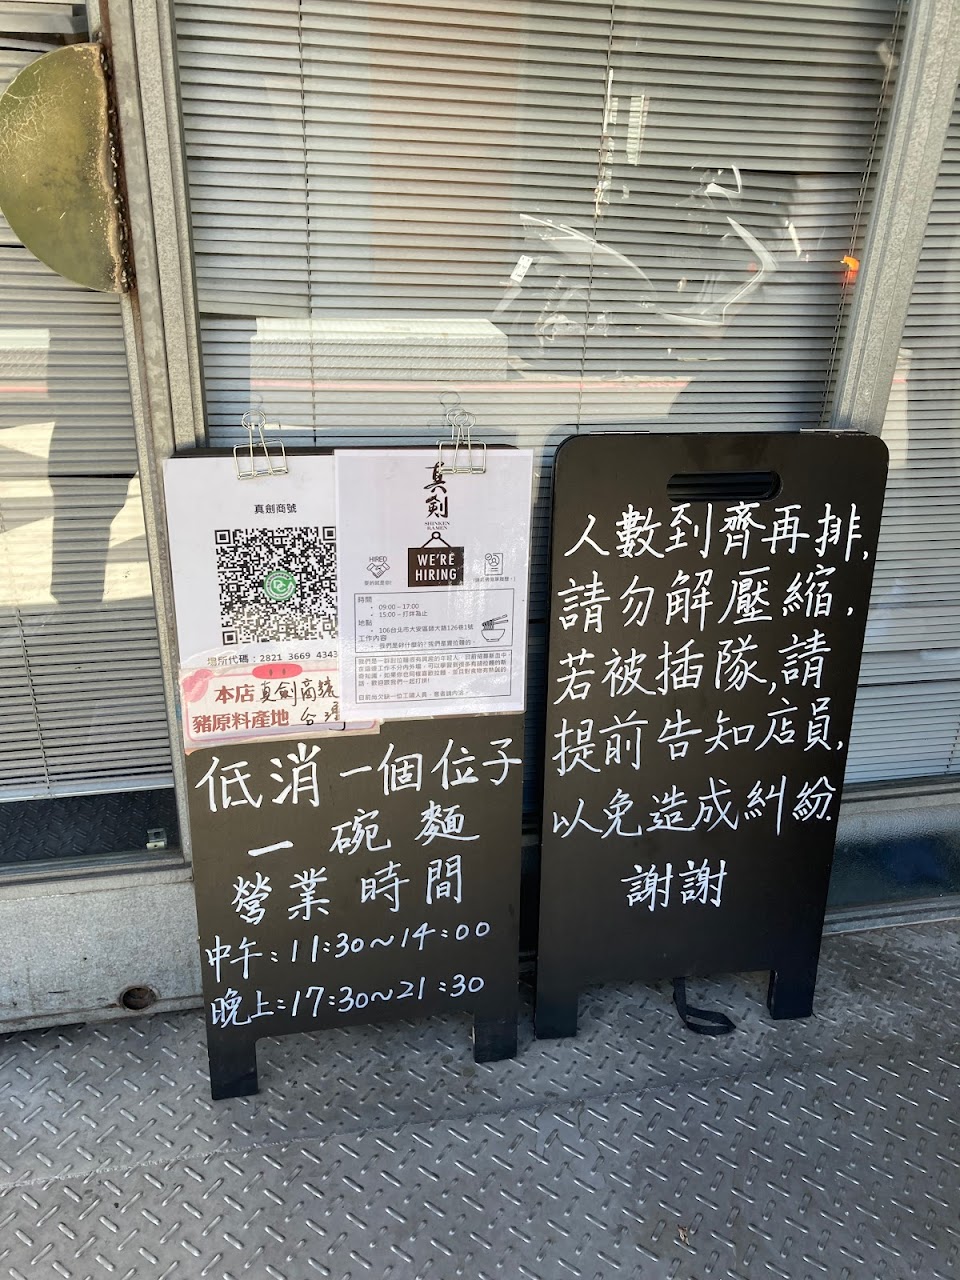 真劍商號
場所代碼：2821 3669 4343
本店真劍商號
豬原料產地 台灣
真劍
SHINKEN
RAMEN
HIRED
WE'RE
HIRING
時間
09:00 – 17:00
15:00 – 打烊為止
地點
106台北市大安區師大路126巷1號
工作內容
低消一個位子
一碗麵
營業時間
中午:11:30~14:00
晚上:17:30~21:30
人數到齊再排,
請勿解壓縮,
若被插隊,請
提前告知店員,
以免造成糾紛.
謝謝